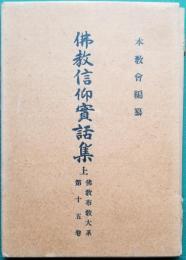 本教會編纂
佛教信仰實話集
上
佛教布教大系
第十五卷